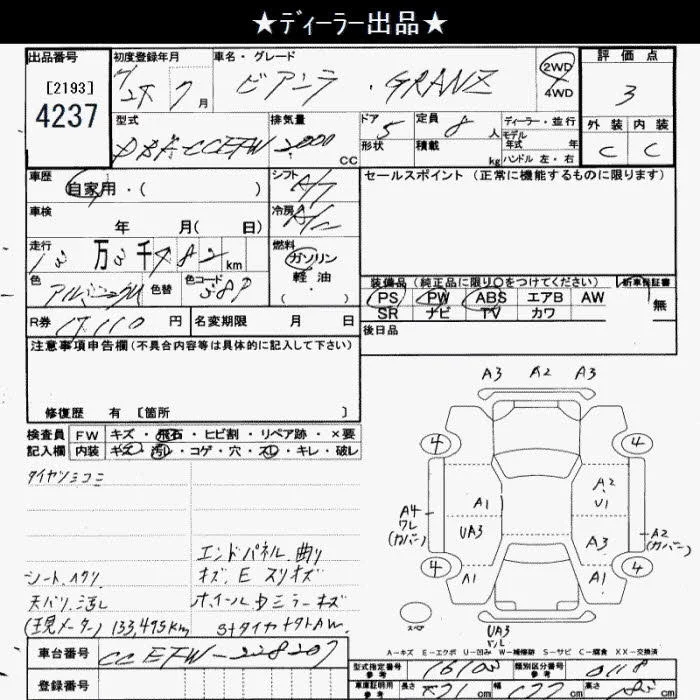 ★ディーラー出品★
出品番号
[2193]
4237
初度登録年月
27 7 月
車名・グレード
ビアンテ・GRANZ
2WD
4WD
評価点
3
外装 内装
C C
型式
DBA-CCEFW
排気量
2000 CC
ドア 5
形状
定員 8 人
積載 kg
ディーラー・並行
モデル
年式 年
ハンドル 左・右
車歴
自家用・( )
シフト
A/T
車検
年 月( 日)
冷房
A/C
走行
万 千 km
燃料
ガソリン
軽油
( )
色
色替
色コード
38P
R券 17,110 円
名変期限 月 日
セールスポイント (正常に機能するものに限ります)
装備品 (純正品に限り○をつけてください)
PS PW ABS エアB AW
SR ナビ TV カワ
新車保証書
無
後日品
注意事項申告欄(不具合内容等は具体的に記入して下さい)
修復歴 有 [箇所 ]
検査員 FW キズ・飛石・ヒビ割・リペア跡・×要
記入欄 内装 キズ・汚レ・コゲ・穴・スレ・キレ・破レ
シート.ヘタリ
天バリ.汚レ
(現メーター) 133,495km
エンドパネル.曲リ
ホイールカミラーキズ
A3 A2 A3
4 4
A1
A2
U1
A4
ワレ
(カバー)
UA3
A3
A2
(カバー)
4 4
A1 A1
スペア
UA3
A-キズ E-エクボ U-凹み W-補修跡 S-サビ C-腐食 XX-交換済
車台番号 CCEFW-228207
登録番号
型式指定番号
参考
類別区分番号
参考
0118
車庫証明用
参考
長さ cm 幅 cm 高さ cm